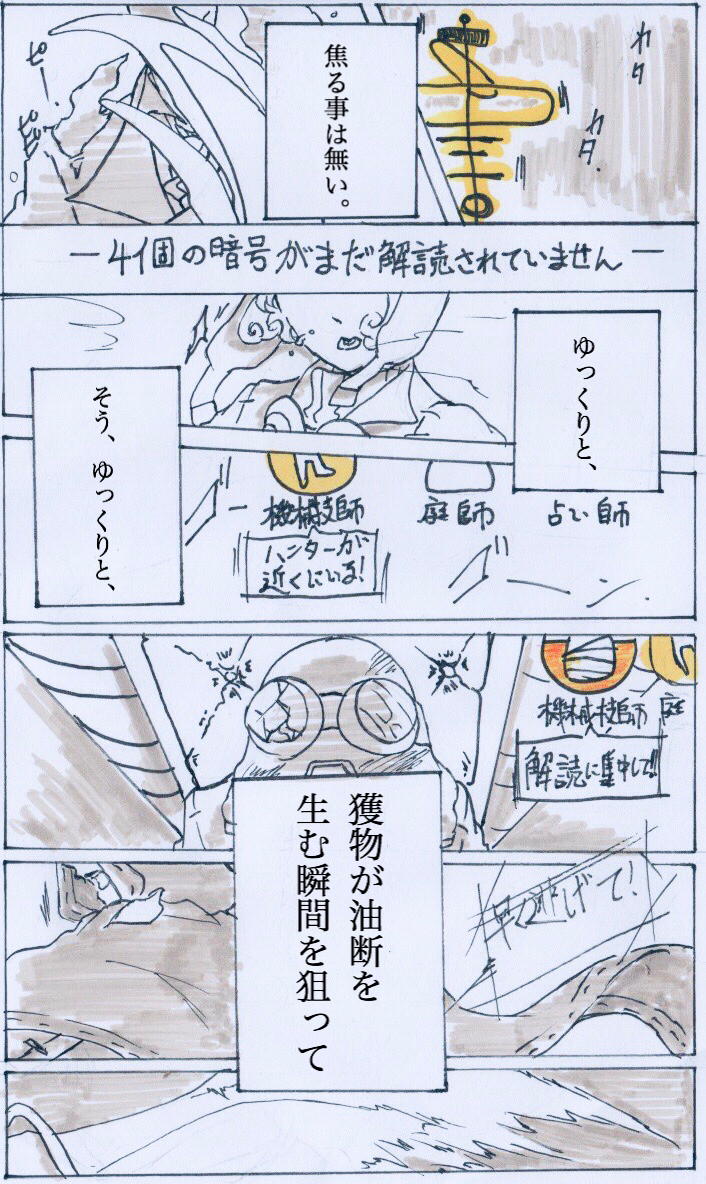 カタ
カタ
焦る事は無い。
ピー
ピピ
ー4個の暗号がまだ解読されていませんー
ゆっくりと、
そう、ゆっくりと、
占い師
庭師
機械技師
ハンターが
近くにいる!
機械技師
庭
解読に集中して!!
獲物が油断を
生む瞬間を狙って
早く逃げて!